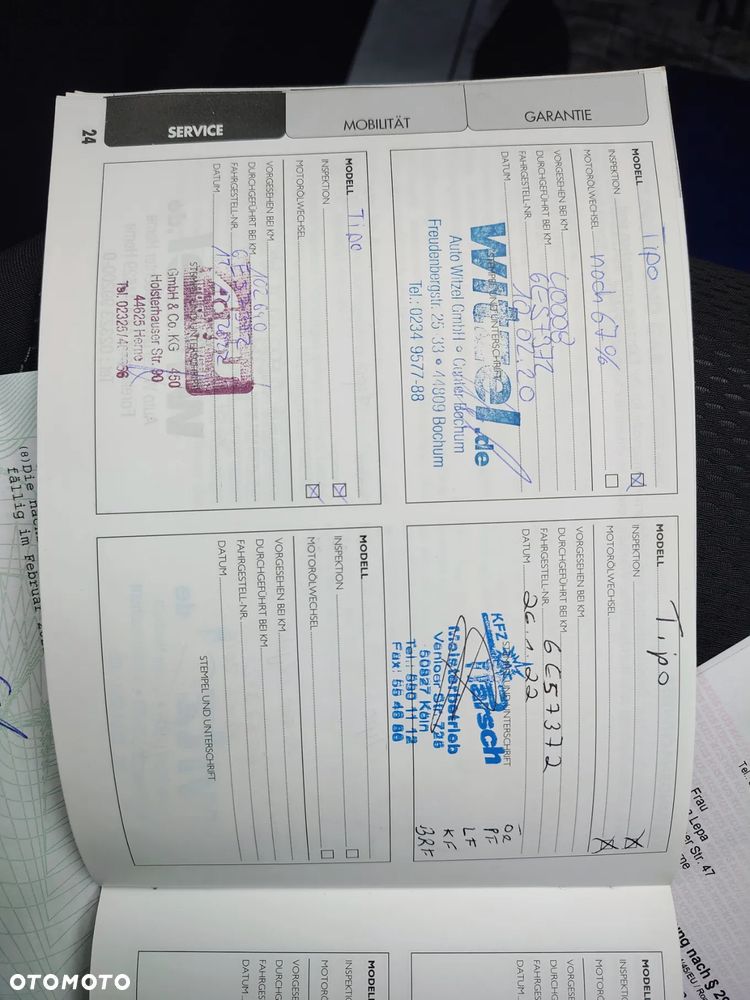 SERVICE
MOBILITÄT
GARANTIE
24
MODELL Tipo
INSPEKTION
MOTORÖLWECHSEL noch 67%
VORGESEHEN BEI KM
DURCHGEFÜHRT BEI KM
FAHRGESTELL-NR. 6E57372
DATUM 10.02.20
STEMPEL UND UNTERSCHRIFT
Witzel.de
Auto Witzel GmbH • Center Bochum
Freudenbergstr. 25-33 • 44809 Bochum
Tel.: 0234 9577-88
MODELL Tipo
INSPEKTION
MOTORÖLWECHSEL
VORGESEHEN BEI KM
DURCHGEFÜHRT BEI KM
FAHRGESTELL-NR. 6E57372
DATUM 26.1.22
STEMPEL UND UNTERSCHRIFT
KFZ
Meisterbetrieb
Venloer Str. 725
50827 Köln
Tel.: 590 11 12
ÖR
PF
LF
KF
MODELL Tipo
INSPEKTION
MOTORÖLWECHSEL
VORGESEHEN BEI KM
DURCHGEFÜHRT BEI KM 102640
FAHRGESTELL-NR.
DATUM
STEMPEL UND UNTERSCHRIFT
GmbH & Co. KG
Holsterhauser Str. 90
44625 Herne
Tel. 02325/
MODELL
INSPEKTION
MOTORÖLWECHSEL
VORGESEHEN BEI KM
DURCHGEFÜHRT BEI KM
FAHRGESTELL-NR.
DATUM
STEMPEL UND UNTERSCHRIFT
MODELL
MOTORÖ
VORGESEHEN
DURCHGEFÜ
FAHRGESTELL
DATUM
MODELL
INSPEKTI
MOTORÖ
VORGESEHEN
DURCHGEFÜ
FAHRGESTELL
DATUM
(8) Die
fällig im Februar
Frau
Lepa
Str. 47
nach §
OTOMOTO